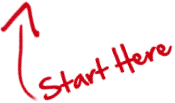 Start Here